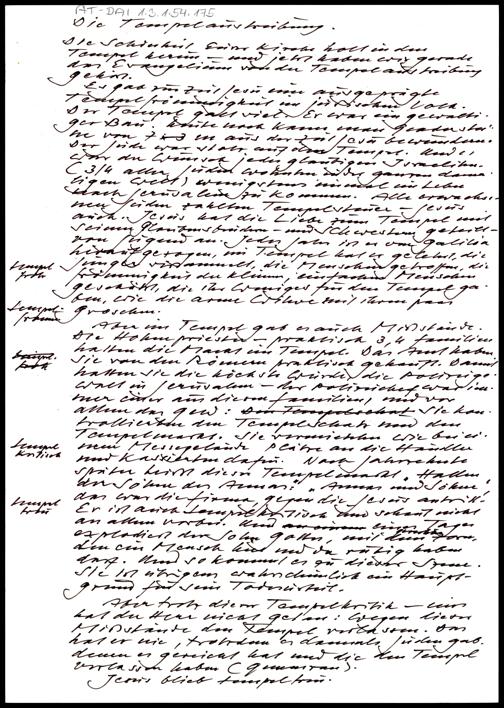 AT-DAI 1.3.1.54.175
Die Tempelaustreibung.
Die Schönheit Eurer Kirche hol in den
Tempel herein – und jetzt haben wir gerade
das Evangelium von der Tempelaustreibung
gehört.
Es gab zur Zeit Jesu eine ausgeprägte
Tempelfrömmigkeit im jüdischen Volk.
Der Tempel galt viel. Er war ein gewalti-
ger Bau. Heute noch kann man Quadersteine
von 7 x 3 m aus der Zeit Jesu bewundern.
Der Jude war stolz auf den Tempel. Und es
war der Wunsch jedes gläubigen Israeliten
(3/4 aller Juden wohnten in der ganzen dama-
ligen Welt) wenigstens einmal im Leben
nach Jerusalem zu kommen. Alle erwachse-
nen Juden zahlten Tempelsteuer – Jesus
auch. Jesus hat die Liebe zum Tempel mit
seinen Glaubensbrüdern – und Schwestern geteilt –
von Jugend an. Jedes Jahr ist er von Galiläa
hinaufgezogen, im Tempel hat er gelehrt, die
Jünger versammelt, die Menschen getroffen, die
Frömmigkeit der kleinen einfachen Menschen
geschätzt, die ihr Weniges für den Tempel ga-
ben, wie die arme Witwe mit ihren paar
Groschen.
Tempel
Tempel-
Aber im Tempel gab es auch Mißstände.
Die Hohenpriester – praktisch 3, 4 Familien
hatten die Macht im Tempel. Das Amt haben
sie von den Römern praktisch gekauft. Damit
hatten sie die höchste Würde, die Polizeige-
walt in Jerusalem – der Polizeichef war im-
mer einer aus diesen Familien, und vor
allem das Geld: Sie kon-
trollierten den Tempelschatz und den
Tempelmarkt. Sie vermieteten wie bei ei-
nem Messegelände Plätze an die Händler
und kassierten dafür. Noch Jahrzehnte
später heißt dieser Tempelmarkt „Hallen
der Söhne des Annas“. „Annas und Söhne“,
das war die Firma, gegen die Jesus antritt.
Er ist auch tempelkritisch und schaut nicht
an allem vorbei. Und eines Tages
explodiert der Sohn Gottes, mit Zorn,
den ein Mensch hie und da ruhig haben
darf. Und so kommt es zu dieser Szene.
Sie ist übrigens wahrscheinlich ein Haupt-
grund für sein Todesurteil.
Tempel
kritisch
Tempel
treu
Aber trotz dieser Tempelkritik – eines
hat der Herr nicht getan: wegen dieser
Mißstände den Tempel verlassen. Das
hat er nie, trotzdem es damals Juden gab,
denen es gereicht hat und die den Tempel
verlassen haben (Qumran).
Jesus blieb tempeltreu.